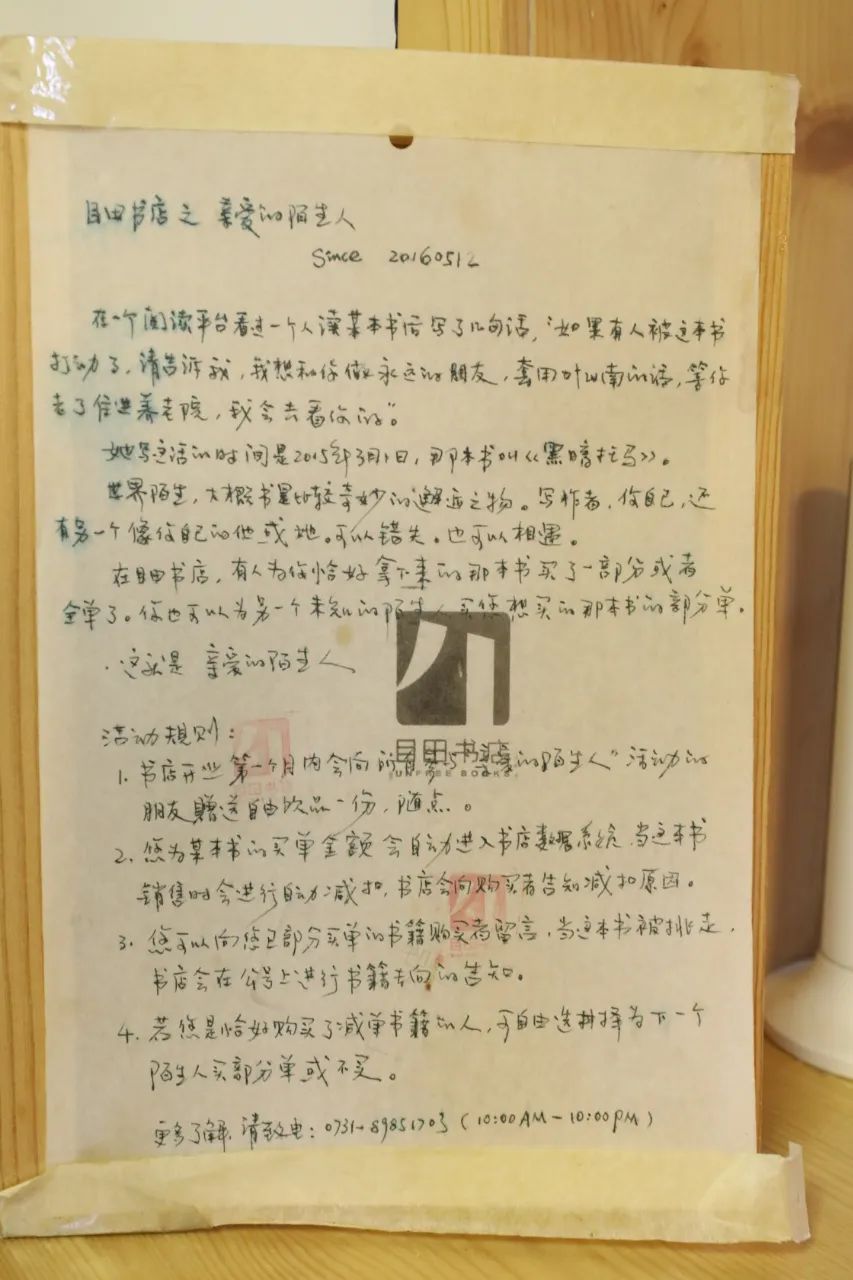 目田书店之 亲爱的陌生人
Since 20160512
在一个阅读平台看过一个人读某本书后写了几句话，“如果有人被这本书
打动了，请告诉我，我想和你做永远的朋友，套用叶山南的话，等你
老了住进养老院，我会去看你的”。
她写这话的时间是2015年3月1日，那本书叫《黑暗托马》。
世界陌生，大概书是比较奇妙的邂逅之物。写作者，你自己，还
有另一个像你自己的他或她。可以错失。也可以相遇。
在目田书店，有人为你恰好拿下来的那本书买了一部分或者
全单了。你也可以为另一个未知的陌生人买您想买的那本书的部分单。
这就是 亲爱的陌生人
活动规则：
1. 书店开业第一个月内会向所有参与“亲爱的陌生人”活动的
朋友赠送自由饮品一份，随点。
2. 您为某本书的买单金额会自动进入书店数据系统，当这本书
销售时会进行自动减扣，书店会向购买者告知减扣原因。
3. 您可以向您已部分买单的书籍购买者留言，当这本书被挑走，
书店会在公号上进行书籍去向的告知。
4. 若您是恰好购买了减单书籍的人，可自由选择为下一个
陌生人买部分单或不买。
更多了解，请致电：0731-89851703（10:00AM-10:00PM）
目田书店